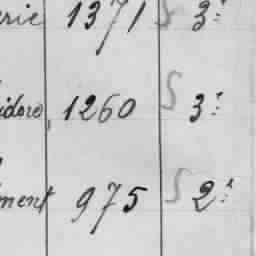 erie 1371 S 3:
idoro, 1260 S 3:
ment 975 S 2: